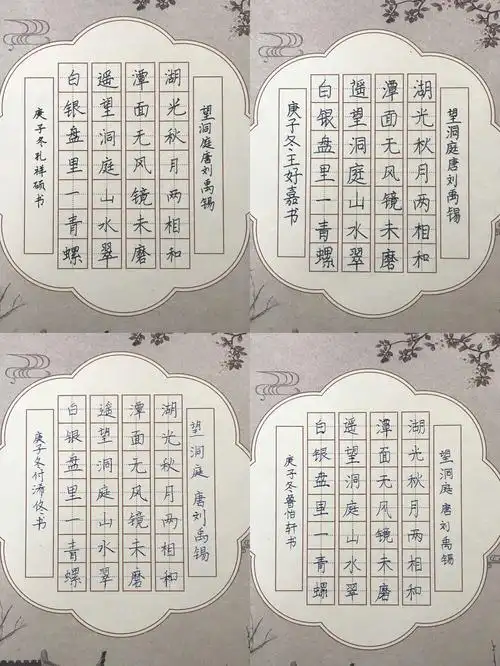 望洞庭唐刘禹锡
湖光秋月两相和
潭面无风镜未磨
遥望洞庭山水翠
白银盘里一青螺
庚子冬孔祥硕书
望洞庭唐刘禹锡
湖光秋月两相和
潭面无风镜未磨
遥望洞庭山水翠
白银盘里一青螺
庚子冬王好嘉书
望洞庭 唐刘禹锡
湖光秋月两相和
潭面无风镜未磨
遥望洞庭山水翠
白银盘里一青螺
庚子冬付沛佟书
望洞庭 唐刘禹锡
湖光秋月两相和
潭面无风镜未磨
遥望洞庭山水翠
白银盘里一青螺
庚子冬鲁怡轩书